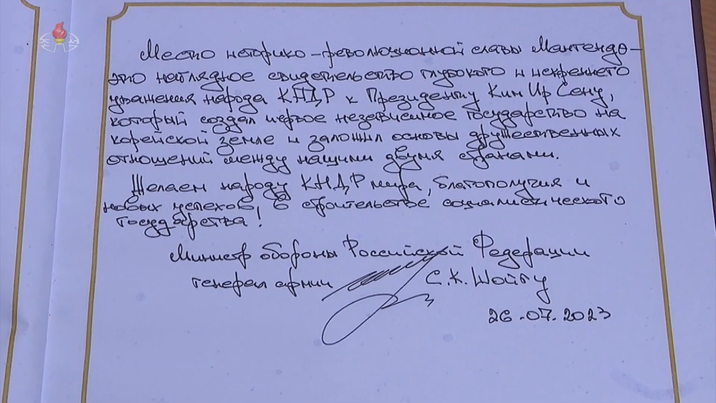 Место историко-революционной славы Мангендэ-
это наглядное свидетельство глубокого и искреннего
уважения народа КНДР к Президенту Ким Ир Сену,
который создал первое независимое государство на
корейской земле и заложил основы дружественных
отношений между нашими двумя странами.
Желаем народу КНДР мира, благополучия и
новых успехов в строительстве социалистического
государства!
Министр обороны Российской Федерации
генерал армии С.К. Шойгу
26.07.2023